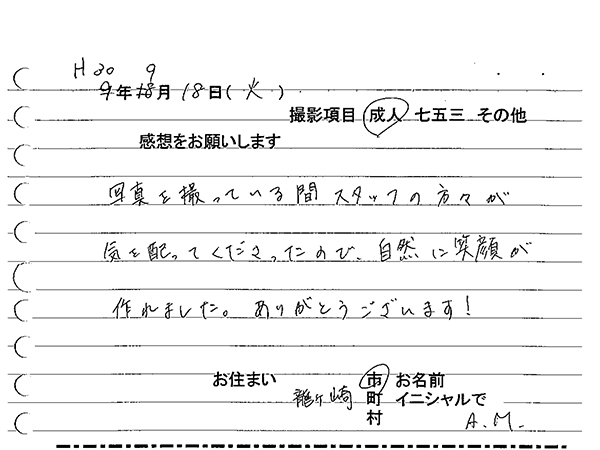 H30 9
9年18月18日(火)
撮影項目 成人 七五三 その他
感想をお願いします
写真を撮っている間スタッフの方々が
気を配ってくださったので、自然に笑顔が
作れました。ありがとうございます!
お住まい 龍ヶ崎 市町村 お名前 イニシャルで A.M.